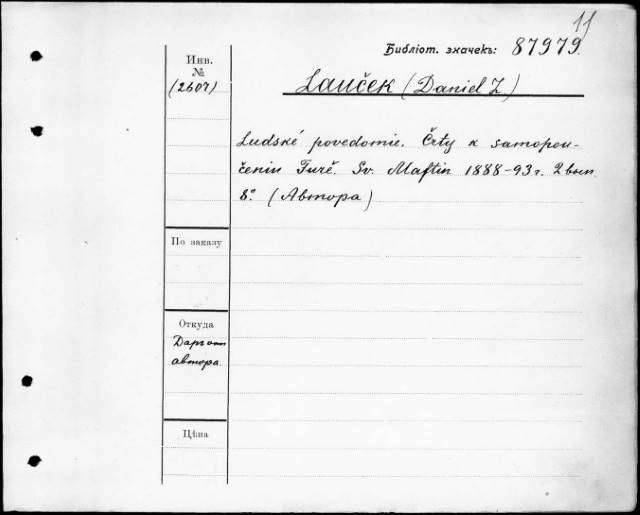 11
Библіот. значекъ: 87979.
Инв.
№
(2607)
Lauček (Daniel Z)
Ludské povedomie. Črty k samopou-
čeniu Turč. Sv. Maftin 1888-93 г. 2 вып.
8° (Автора)
По заказу
Откуда
Даръ от
автора
Цѣна